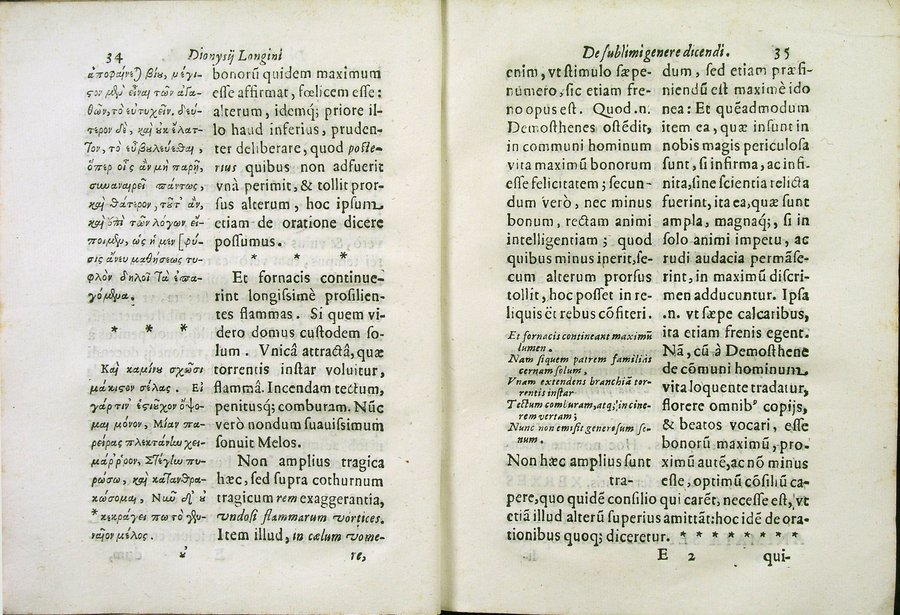 34 Dionysij Longini
ἀποφαίνε) βίȣ, μέγι-
ςον μὲν εἶναι τῶν ἀγα-
θῶν, τὸ εὐτυχεῖν, δεύ-
τερον δὲ, καὶ ȣκ ἔλατ-
τον, τὸ εὖ βȣλεύεσθαι,
ὅπερ οἷς ἂν μὴ παρῇ,
συναναιρεῖ πάντως,
καὶ θάτερον, τȣτ' ἂν,
καὶ ἐπὶ τῶν λόγων εἴ-
ποιμεν, ὡς ἡ μὲν [φύ-
σις ἄνευ μαθήσεως τυ-
φλὸν δηλοῖ τὰ ἐπα-
γόμενα.
* * *
Καὶ καμίνȣ σχῶσι
μάκιςον σέλας. Εἰ
γάρ τιν' ἑςιȣχον ὄψο-
μαι μόνον, Μίαν πα-
ρείρας πλεκτάνην χει-
μάῤῥοον, Στέγην πυ-
ρώσω, καὶ κατανθρα-
κώσομαι, Νῦν δ' ȣ
*κέκραγέ πω τὸ γεν-
ναῖον μέλος.
ȣ
bonorũ quidem maximum
esse affirmat, fœlicem esse:
alterum, idemq; priore il-
lo haud inferius, pruden-
ter deliberare, quod poste-
rius quibus non adfuerit
vnà perimit, & tollit pror-
sus alterum, hoc ipsum
etiam de oratione dicere
possumus.
* * *
Et fornacis continue-
rint longissimè prosilien-
tes flammas. Si quem vi-
dero domus custodem so-
lum. Vnicâ attractâ, quæ
torrentis instar voluitur,
flammâ. Incendam tectum,
penitusq; comburam. Nũc
verò nondum suauissimum
sonuit Melos.
Non amplius tragica
hæc, sed supra cothurnum
tragicum rem exaggerantia,
vndosi flammarum vortices.
Item illud, in cælum vome-
re,
De sublimi genere dicendi. 35
enim, vt stimulo sæpe-
numero, sic etiam fre-
no opus est. Quod .n.
Demosthenes ostẽdit,
in communi hominum
vita maximũ bonorum
esse felicitatem; secun-
dum verò, nec minus
bonum, rectam animi
intelligentiam; quod
quibus minus inerit, se-
cum alterum prorsus
tollit, hoc posset in re-
liquis et rebus cõfiteri.
Et fornacis contineant maximũ
lumen.
Nam siquem patrem familiâs
cernam solum,
Vnam extendens branchiã tor-
rentis instar
Tectum comburam, atq; in cine-
rem vertam;
Nunc non emisit generosum so-
num.
Non hæc amplius sunt
tra-
dum, sed etiam præfi-
niendũ est maximè ido
nea: Et quẽadmodum
item ea, quæ insunt in
nobis magis periculosa
sunt, si infirma, ac infi-
nita, sine scientia relicta
fuerint, ita ea, quæ sunt
ampla, magnaq;, si in
solo animi impetu, ac
rudi audacia permãse-
rint, in maximũ discri-
men adducuntur. Ipsa
.n. vt sæpe calcaribus,
ita etiam frenis egent.
Nã, cũ à Demosthene
de cõmuni hominum
vita loquente tradatur,
florere omnibꝰ copijs,
& beatos vocari, esse
bonorũ maximũ, pro-
ximũ autẽ, ac nõ minus
esse, optimũ cõsiliũ ca-
pere, quo quidẽ consilio qui carẽt, necesse est, vt
etiã illud alterũ superius amittãt: hoc idẽ de ora-
tionibus quoq; diceretur. * * * * * * * *
E 2 qui-